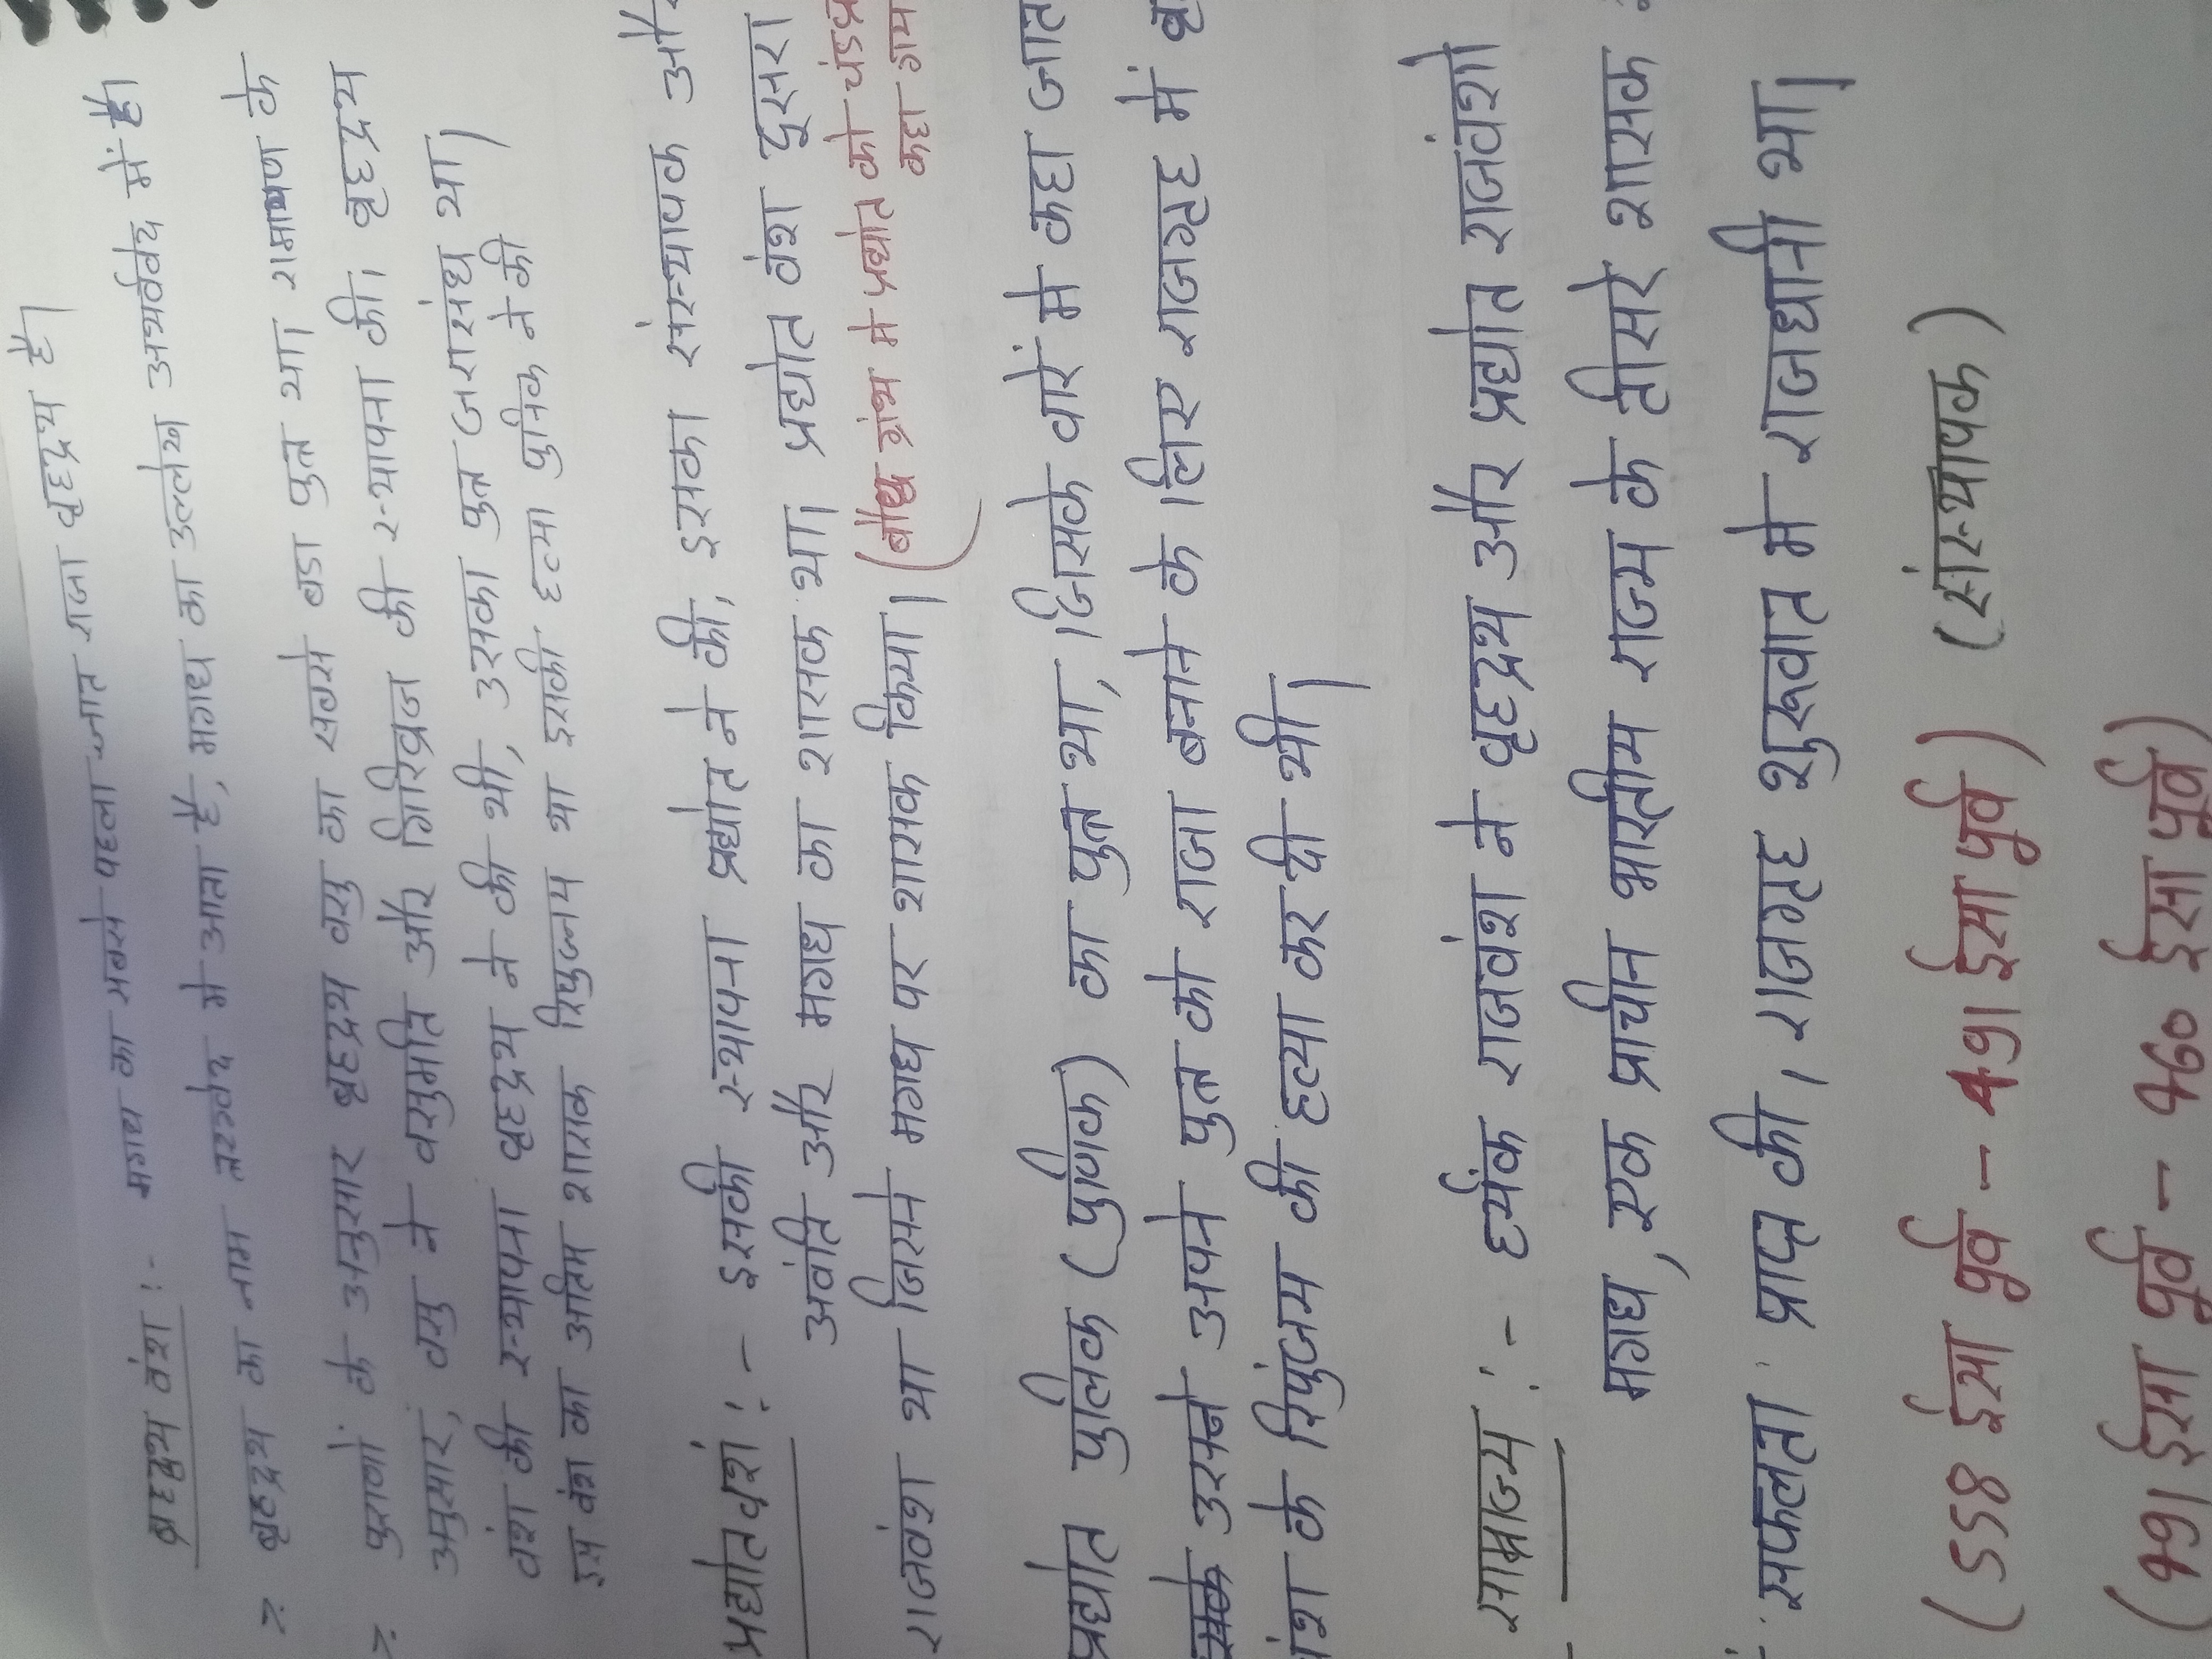 बृहद्रथ वंश :- मगध का सबसे पहला ज्ञात राजा बृहद्रथ है।
बृहद्रथ का नाम ऋग्वेद मे आता है, मगध का उल्लेख अथर्ववेद में है।
पुराणों के अनुसार बृहद्रथ वसु का सबसे बडा पुत्र था। रामायण के
अनुसार, वसु ने वसुमति और गिरिव्रज की स्थापना की। बृहद्रथ
वंश की स्थापना बृहद्रथ ने की थी, उसका पुत्र जरासंध था।
इस वंश का अंतिम शासक रिपुन्जय था इसकी हत्या पुनिक ने की
प्रद्योत वंश :- इसकी स्थापना प्रद्योत ने की, इसका संस्थापक और
अवंति और मगध का शासक था। प्रद्योत वंश दूसरा
राजवंश था जिसने मगध पर शासक किया। (बौद्ध ग्रंथ मे प्रद्योत को
कहा गया
प्रद्योत पुलिक (पुणिक) का पुत्र था, जिसके बारें मे कहा जात
उसने अपने पुत्र को राजा बनाने के लिए राजगृह में
के रिपुंजय की हत्या कर दी थी।
साम्राज्य :- हर्यक राजवंश ने बृहद्रथ और प्रद्योत राजवंशो
मगध, एक प्राचीन भारतीय राज्य के तीसरे शासक
सफलता प्राप्त की, राजगृह शुरूवात मे राजधानी था।
(558 ईसा पुर्व - 491 ईसा पुर्व) (संस्थापक)
(491 ईसा पुर्व - 460 ईसा पुर्व)